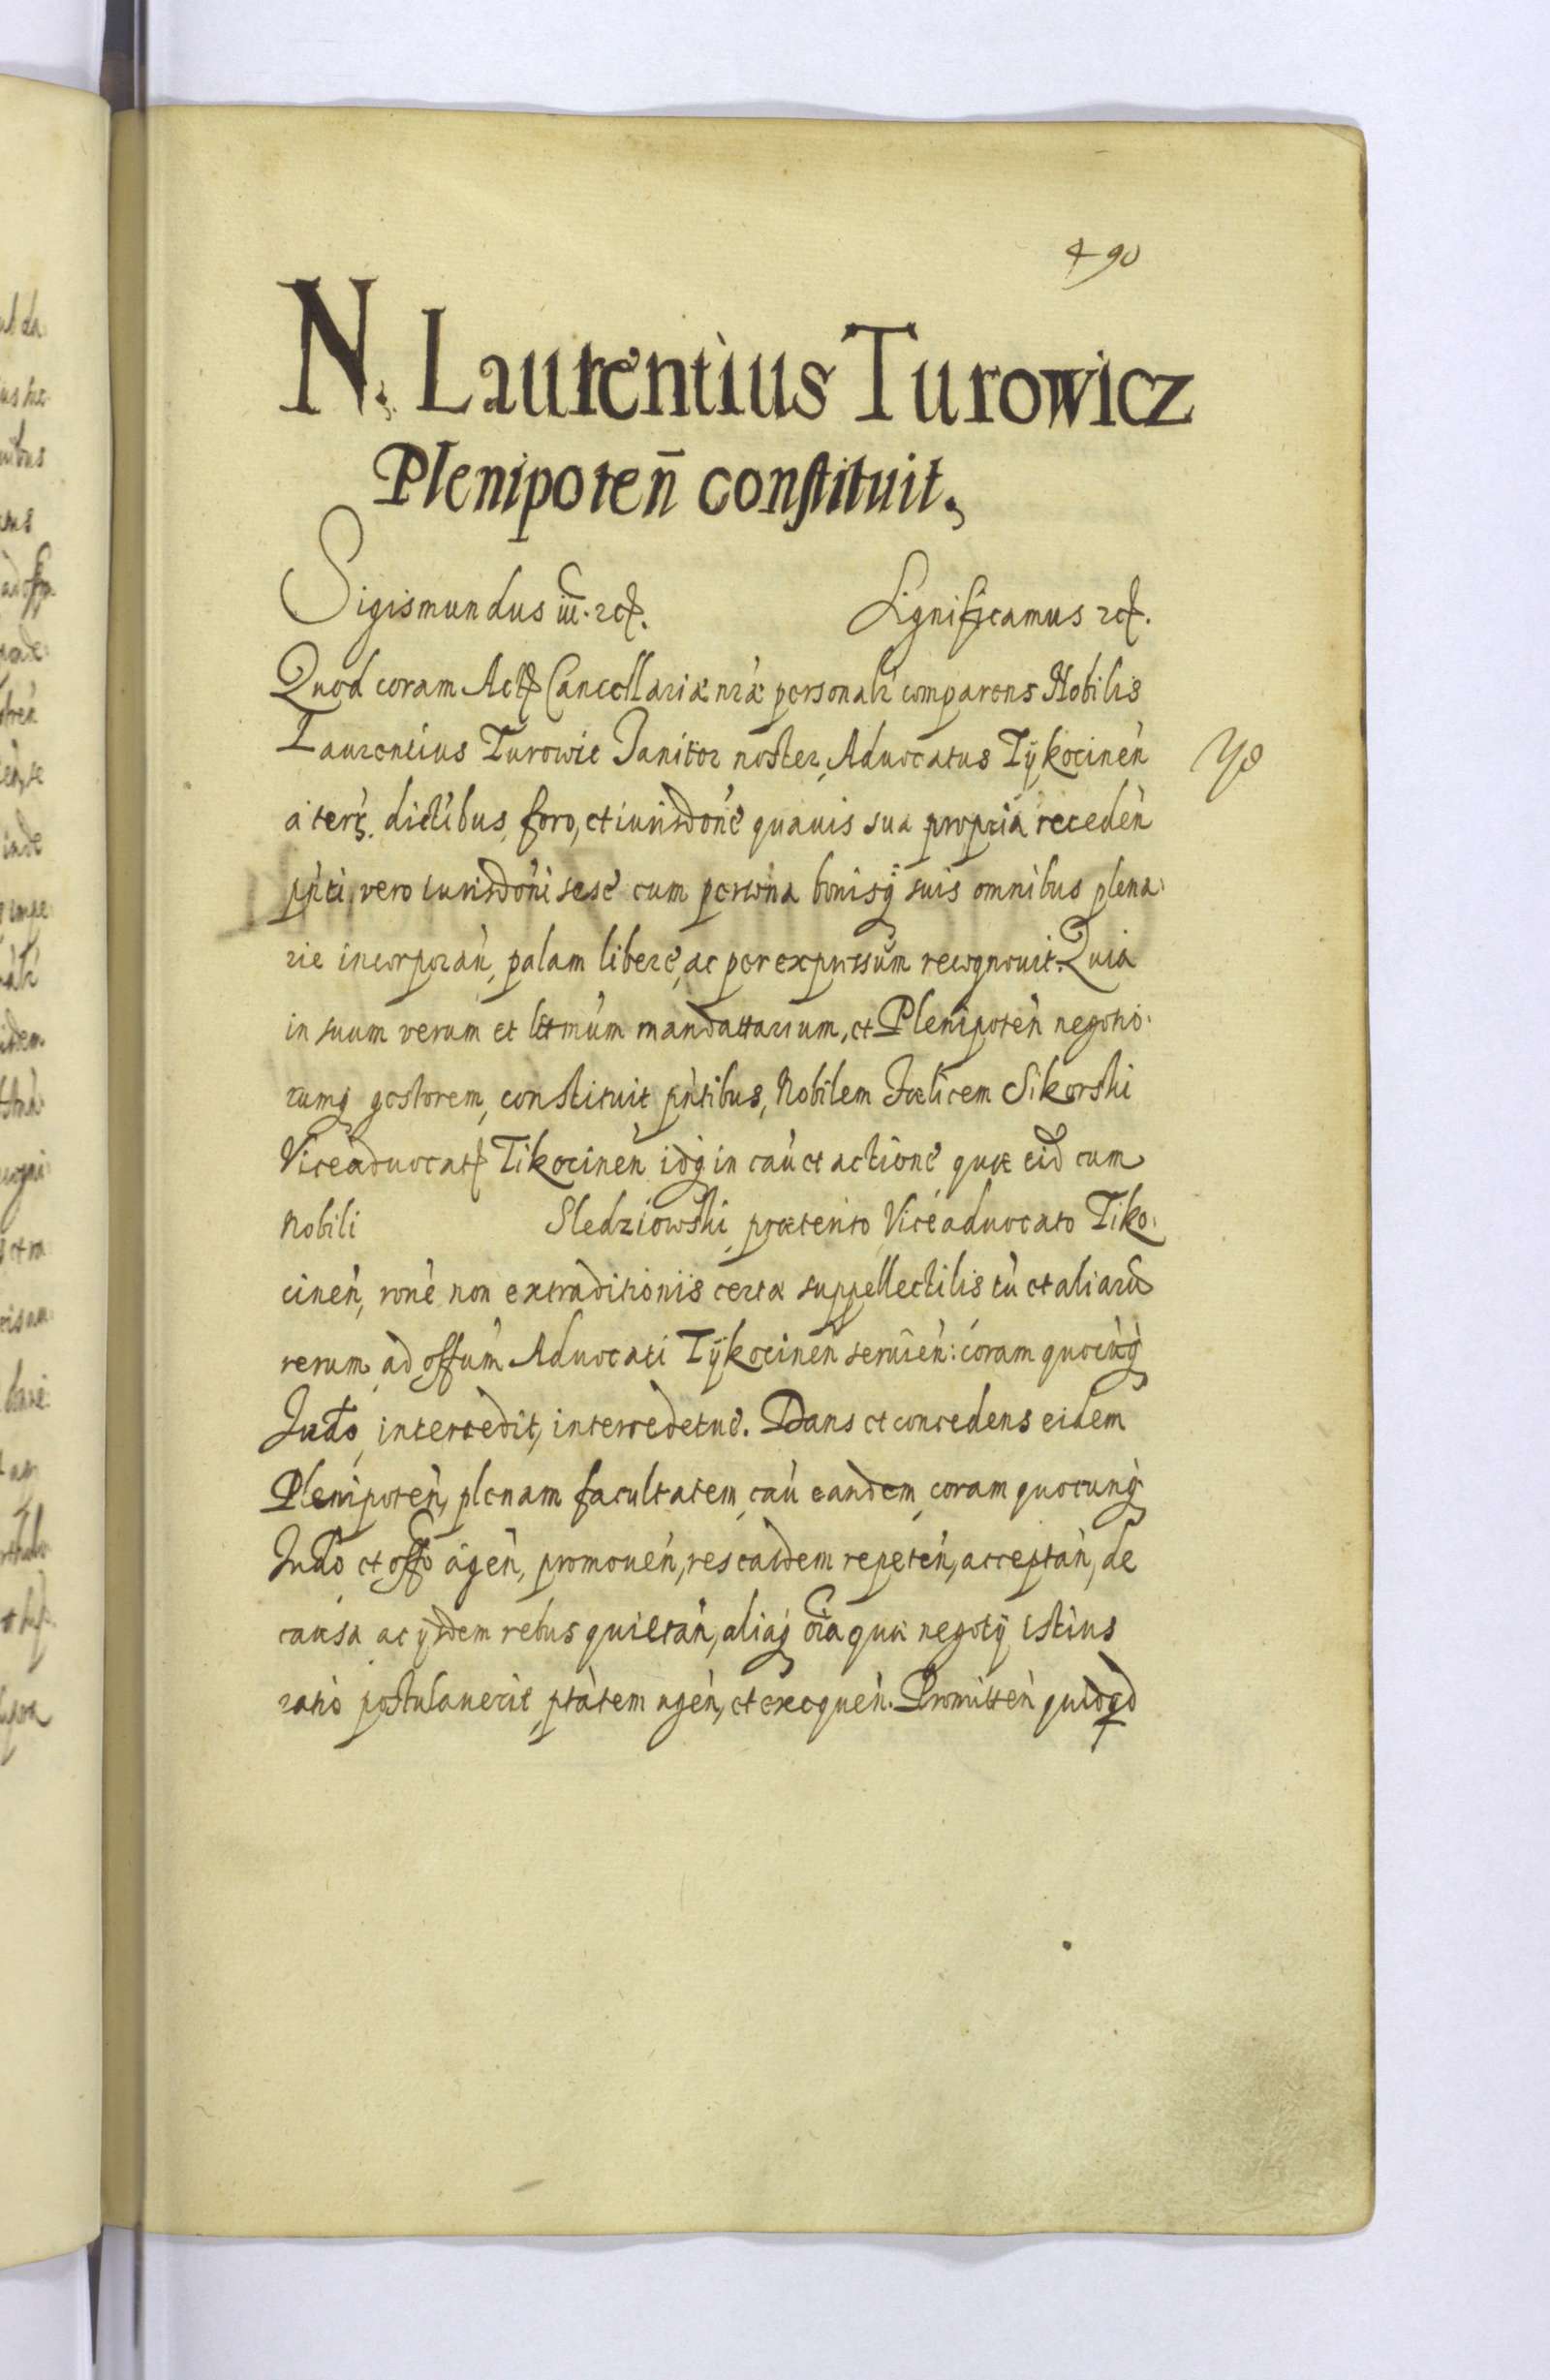 490
N. Laurentius Turowicz
Plenipoten̄ constituit.
Sigismundus iii. etc. Significamus etc.
Quod coram Actis Cancellariæ nr̃æ personalr̃ comparens Nobilis
Laurentius Turowic Janitor noster, Aduocatus Tÿkocineǹ
à terris, dictibus, foro, et iurisdõne quauis sua propria recedeǹ
pñti vero iurisdõni sese cum persona bonisq́ suis omnibus plena
rie incorporań, palam libere, ac per expressum recognouit. Quia
in suum verum et ltt̃mum mandattarium, et Plenipoteǹ negotio
rumq́ gestorem, constituit pñtibus, Nobilem Fœlicem Sikorski
Viceaduocat Tikocineń idq́ in cau et actione quæ eid cum
Nobili Sledziowski, prætenso Viceaduocato Tiko
cineń, rone non extraditionis certæ suppellectilis tu et aliarũ
rerum ad offum Aduocati Tÿkocineń seruień: coram quocuq́
Judo, intercedit, intercedetue. Dans et concedens eidem
Plenipoteń, plenam facultatem, cau eandem, coram quocunq́
Judo et offo ageń, promoueń, res easdem repeteń, acceptań, de
causa ac ÿsdem rebus quietań, aliaq́ oĩa quæ negotÿ istius
ratio postulauerit, ptatem ageń, et exequeń. Promitteń quidqd